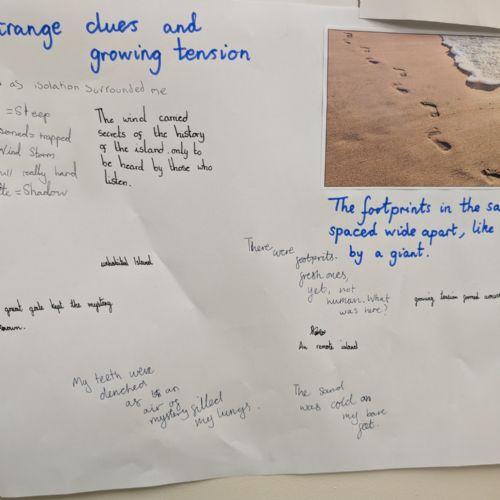 trange clues and
growing tension
as isolation surrounded me
=Steep
=trapped
Wind Storm
really hard
=Shadow
The wind carried
secrets of the history
of the island. only to
be heard by those who
listen.
The footprints in the sa
spaced wide apart, like
by a giant.
There were
footprints.
fresh ones,
yet, not
human. What
was here?
Island
great gale kept the mystery
growing tension formed
An remote island
My teeth were
clenched
as
an
air of
mystery filled
my lungs.
The sand
was cold on
my bare
feet.